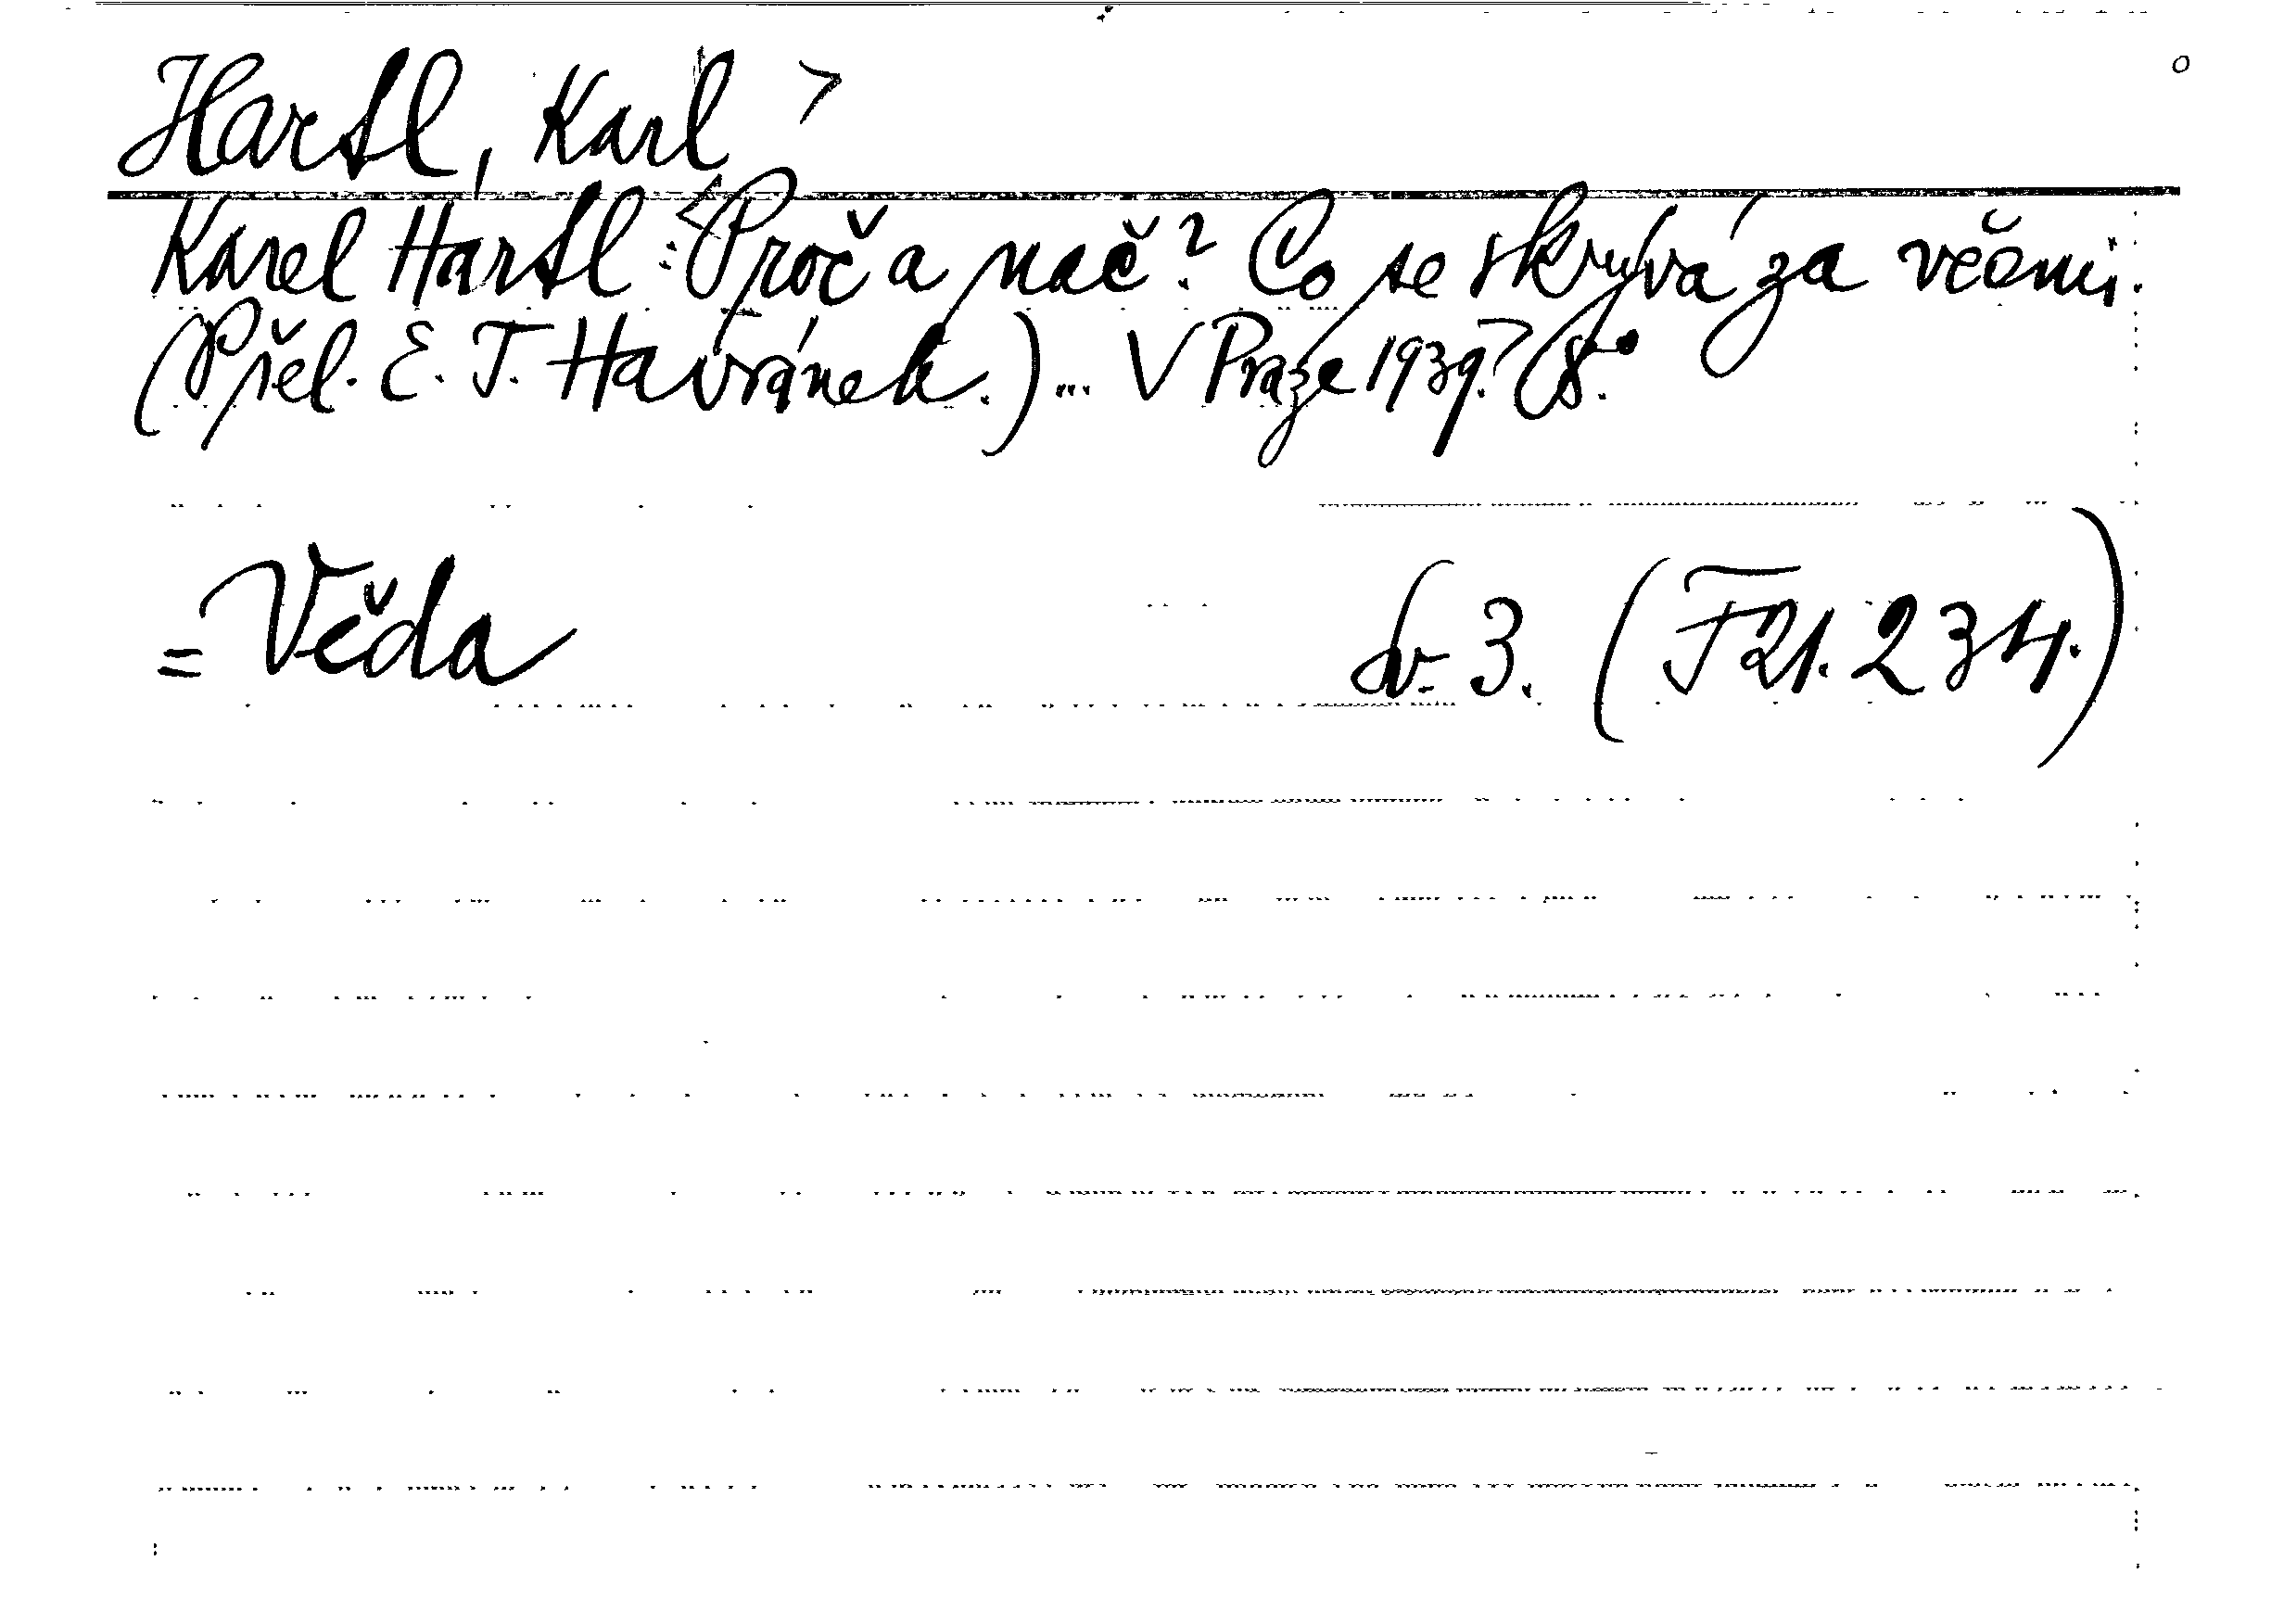 Hartl, Karl
Karel Hartl: Proč a nač? Co se skrývá za věcmi.
(Přel. E. T. Havránek.) ... V Praze 1939. 8.°
= Věda sv. 3. (F 21. 234.)